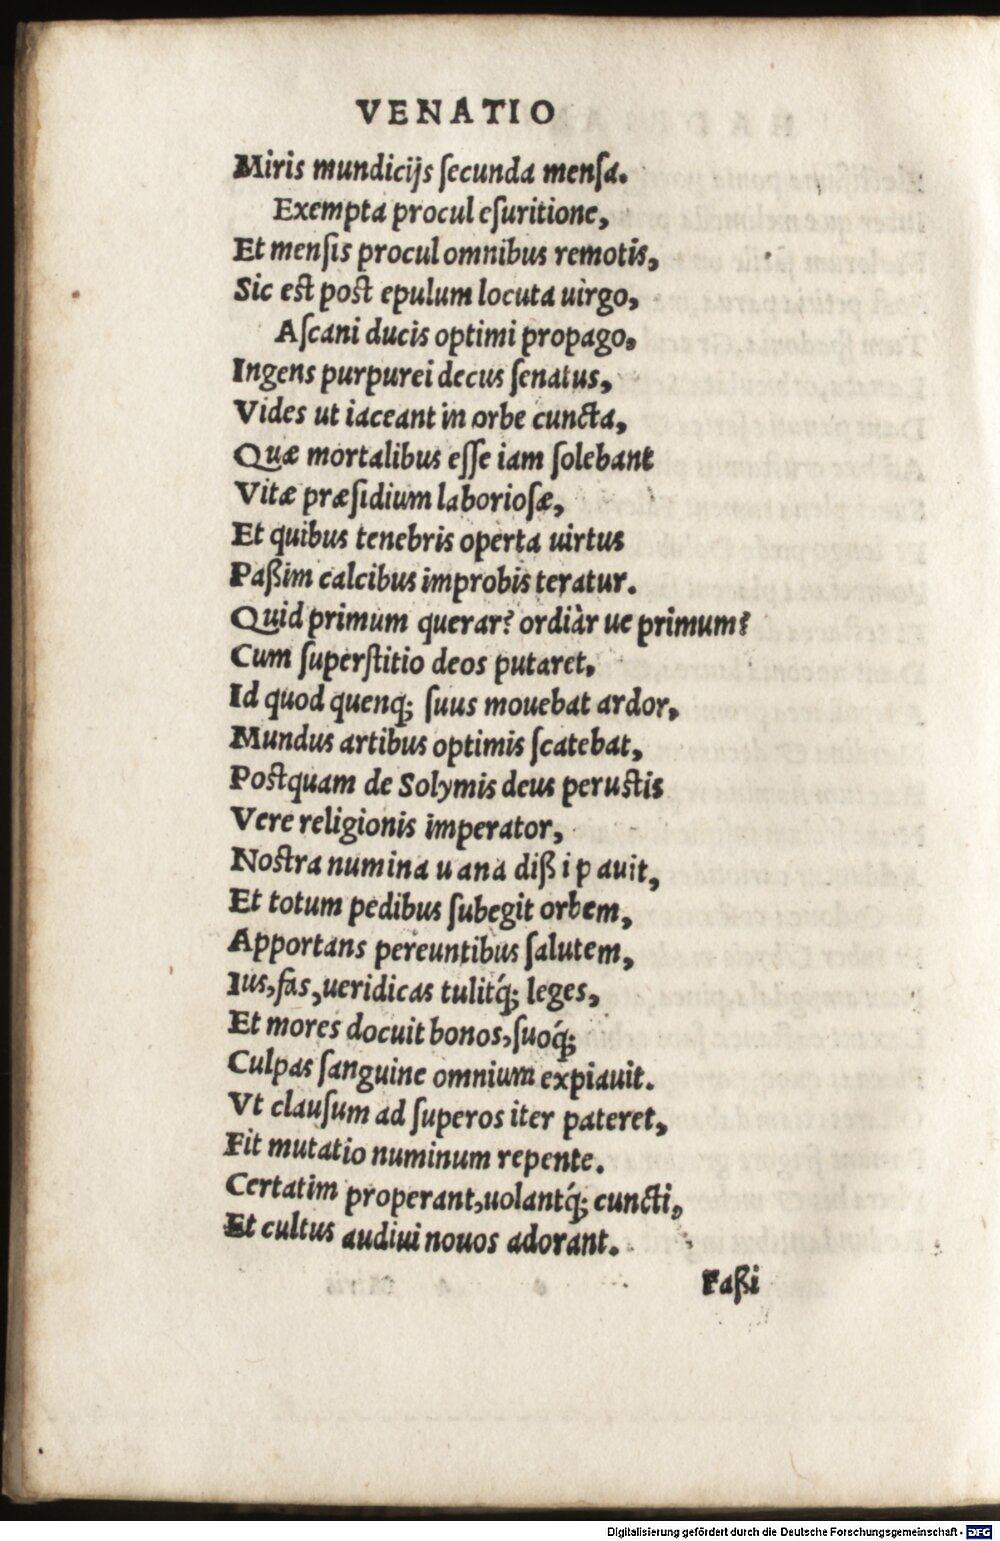 VENATIO
Miris mundicijs ſecunda menſa.
Exempta procul eſuritione,
Et menſis procul omnibus remotis,
Sic est post epulum locuta uirgo,
Aſcani ducis optimi propago,
Ingens purpurei decus ſenatus,
Vides ut iaceant in orbe cuncta,
Quæ mortalibus eſſe iam ſolebant
Vitæ præſidium laborioſæ,
Et quibus tenebris operta uirtus
Paßim calcibus improbis teratur.
Quid primum querar? ordiàr ue primum?
Cum ſuperstitio deos putaret,
Id quod quenq; ſuus mouebat ardor,
Mundus artibus optimis ſcatebat,
Postquam de Solymis deus perustis
Vere religionis imperator,
Nostra numina uana dißipauit,
Et totum pedibus ſubegit orbem,
Apportans pereuntibus ſalutem,
Ius, fas, ueridicas tulitq́; leges,
Et mores docuit bonos, ſuoq́;
Culpas ſanguine omnium expiauit.
Vt clauſum ad ſuperos iter pateret,
Fit mutatio numinum repente.
Certatim properant, uolantq́; cuncti,
Et cultus audiui nouos adorant.
Faßi
Digitalisierung gefördert durch die Deutsche Forschungsgemeinschaft - DFG